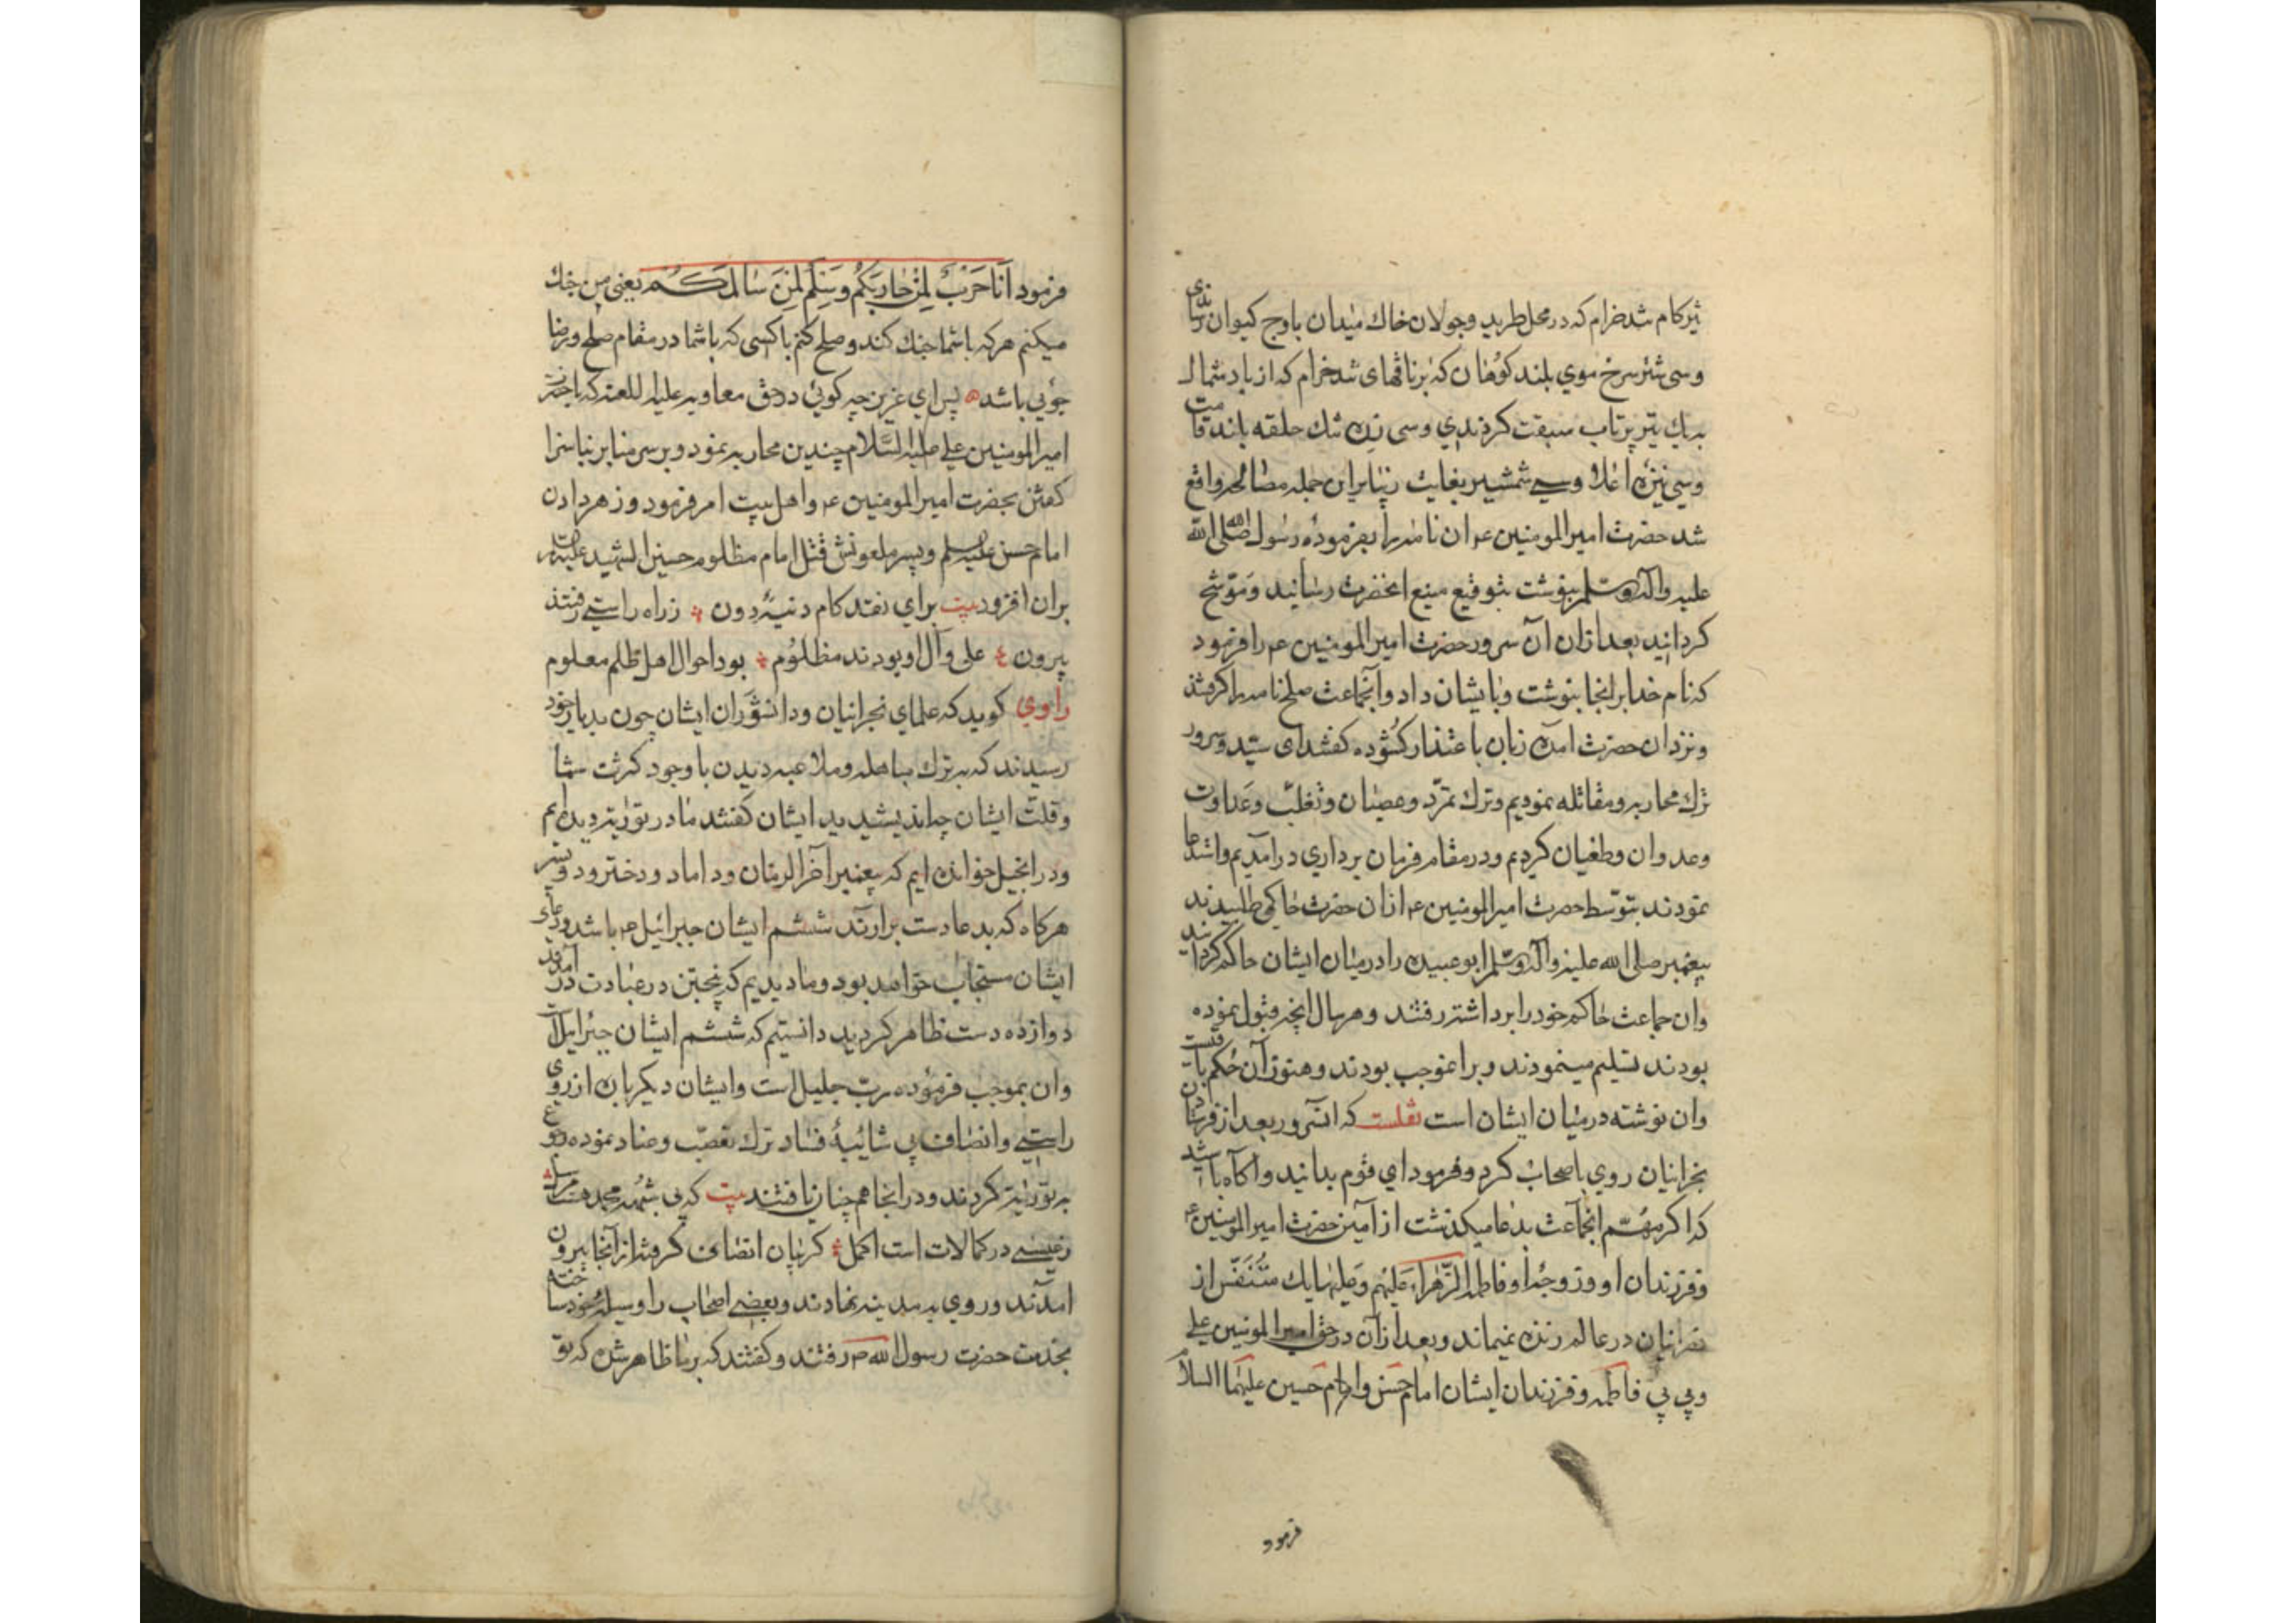 تیزکام تندخرام که در محل طرید وجولان خاک میدان باوج کیوان رسانندی
وسی شتر سرخ موی بلند کوهان که برناقهای تندخرام که از باد شمال
به یک تیر پرتاب سبقت کردندی وسی زره تنک حلقه بلند قامت
وسی نیزه اعلا وسی شمشیر بغایت زیبا براین جمله مصالحه واقع
شد حضرت امیرالمومنین ع م ان نامه را بفرموده رسول الله صلی الله
علیه واله وسلم بنوشت بتوقیع منیع انحضرت رسانید وموشح
کردانید بعد ازان آن سرور حضرت امیرالمومنین ع م را فرمود
که نام خدا برانجا بنوشت وبایشان داد وآنجماعت صلح نامه را کرفتند
ونزد ان حضرت امده زبان باعتذار کشوده کفتند ای سید وسرور
ترک محاربه ومقاتله نمودیم وترک تمرد وعصیان وتغلب وعداوت
وعدوان وطغیان کردیم ودرمقام فرمان برداری درآمدیم واستدعا
نمودند بتوسط حضرت امیرالمومنین ع م ازان حضرت حاکمی طلبیدند
پیغمبر صلی الله علیه وآله وسلم ابوعبیده را درمیان ایشان حاکم کردانید
وان جماعت حاکم خود را برداشته رفتند وهرسال انچه قبول نموده
بودند تسلیم مینمودند وبرانموجب بودند وهنوز آن حکم باقیست
وان نوشته درمیان ایشان است نقلست که انسرور بعد از فرستادن
نجرانیان روی باصحاب کرد وفرمود ای قوم بدانید واکاه باشید
که اکر مهم انجماعت بدعا میکذشت از آمین حضرت امیرالمومنین ع م
وفرزندان او وزوجه او فاطمه الزهراء علیهم وعلیها یک متنفس از
نصرانیان درعالم زنده نمیماند وبعد ازآن درحق امیرالمومنین علی
وبی بی فاطمه وفرزندان ایشان امام حسن وامام حسین علیهما السلام
فرمود
فرمود اَنَا حَرْبٌ لِمَنْ حَارَبَکُمْ وَسِلْمٌ لِمَنْ سَالَمَکُم یعنی من جنک
میکنم هرکه باشما جنک کند وصلح کنم باکسی که باشما درمقام صلح ورضا
جوئی باشد پس ای عزیز چه کوئی درحق معاویه علیه اللعنه که باحضرت
امیرالمومنین علی علیه السلام چندین محاربه نمود وبرسر منابر بناسزا
کفتن بحضرت امیرالمومنین ع م واهل بیت امر فرمود وزهر دادن
امام حسن علیه السلم وپسر ملعونش قتل امام مظلوم حسین الشهید علیه السلام
بران افزود بیت برای نقد کام دنییٔ دون زراه راستی رفتند
بیرون علی وآل او بودند مظلوم بود احوال اهل ظلم معلوم
راوی کوید که علمای نجرانیان ودانشوران ایشان چون بدیار خود
رسیدند که به ترک مباهله وملاعبه دیدن باوجود کثرت شما
وقلت ایشان چه اندیشیدید ایشان کفتند ما در توریة دیده ایم
ودر انجیل خوانده ایم که پیغمبر آخرالزمان وداماد ودختر ودو پسر
هرکاه که بدعا دست برارند ششم ایشان جبرائیل ع م باشد ودعای
ایشان مستجاب خواهد بود وما دیدیم که پنجتن درعبادت درآمدند
دوازده دست ظاهر کردید دانستیم که ششم ایشان جبرایل است
وان بموجب فرموده رب جلیل است وایشان دیکرباره ازروی
راستی وانصاف بی شائبهٔ فساد ترک تعصب وعناد نموده رجوع
به توریة کردند ودرانجا همچنان یافتند بیت که بی شبهه محمد هست مرسل
رعیسی در کمالات است اکمل کریبان انصاف کرفته ازآنجا بیرون
امدند وروی به مدینه نهادند وبعضی اصحاب را وسیلهٔ خود ساخته
بخدمت حضرت رسول الله ص رفتند وکفتند که برما ظاهر شده که تو